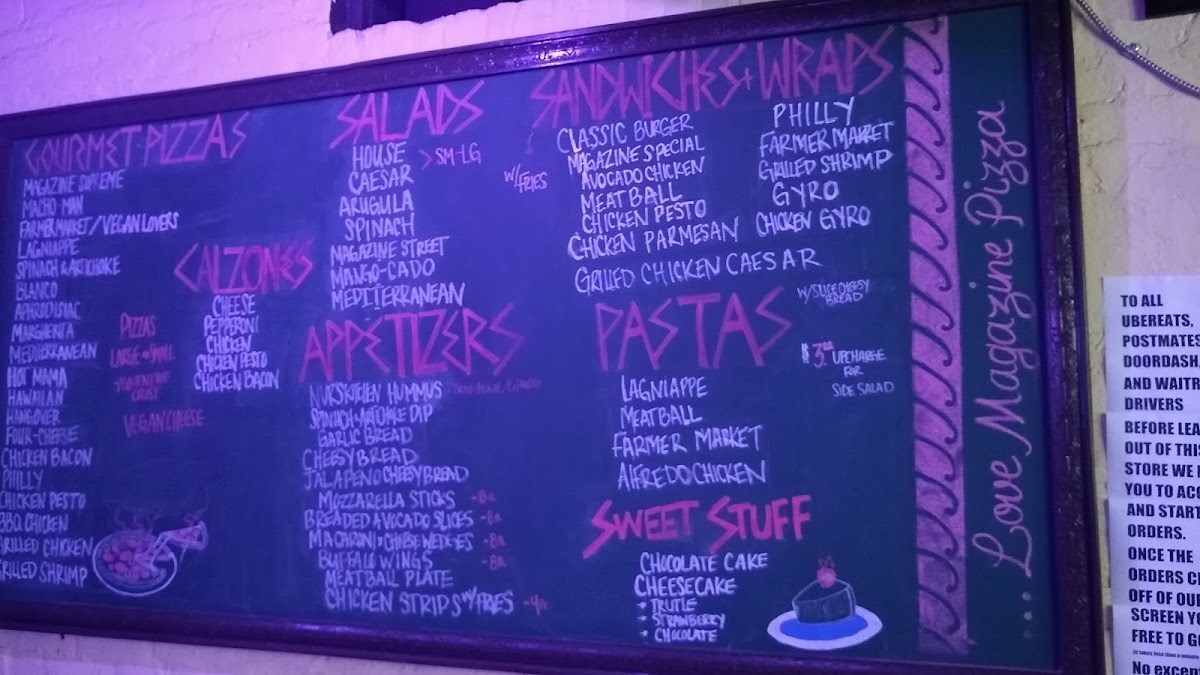 GOURMET PIZZAS
MAGAZINE SUPREME
MACHO MAN
FARMER MARKET / VEGAN LOVERS
LAGNIAPPE
SPINACH & ARTICHOKE
BLANCO
APHRODISIAC
MARGHERITA
MEDITERRANEAN
HOT MAMA
HAWAIIAN
HANGOVER
FOUR-CHEESE
CHICKEN BACON
PHILLY
CHICKEN PESTO
BBQ CHICKEN
GRILLED CHICKEN
GRILLED SHRIMP
CALZONES
CHEESE
PEPPERONI
CHICKEN
CHICKEN PESTO
CHICKEN BACON
PIZZAS
LARGE SMALL
CRUST
VEGAN CHEESE
SALADS
HOUSE > SM-LG
CAESAR
ARUGULA
SPINACH
MAGAZINE STREET
MANGO-CADO
MEDITERRANEAN
APPETIZERS
HUMMUS
SPINACH-ARTICHOKE DIP
GARLIC BREAD
CHEESY BREAD
JALAPENO CHEESY BREAD
MOZZARELLA STICKS -8
BREADED AVOCADO SLICES
MACARONI & CHEESE WEDGES -8
BUFFALO WINGS -8
MEATBALL PLATE
CHICKEN STRIPS W/ FRIES
SANDWICHES + WRAPS
W/ FRIES
CLASSIC BURGER
MAGAZINE SPECIAL
AVOCADO CHICKEN
MEATBALL
CHICKEN PESTO
CHICKEN PARMESAN
GRILLED CHICKEN CAESAR
PHILLY
FARMER MARKET
GRILLED SHRIMP
GYRO
CHICKEN GYRO
PASTAS
W/ SLICE CHEESY
BREAD
$3.00 UPCHARGE
FOR
SIDE SALAD
LAGNIAPPE
MEATBALL
FARMER MARKET
ALFREDO CHICKEN
SWEET STUFF
CHOCOLATE CAKE
CHEESECAKE
• TRUTLE
• STRAWBERRY
• CHOCOLATE
... Love Magazine Pizza
TO ALL
UBEREATS,
POSTMATES
DOORDASH,
AND WAITR
DRIVERS
BEFORE LEA
OUT OF THIS
STORE WE
YOU TO ACC
AND START
ORDERS.
ONCE THE
ORDERS C
OFF OF OUR
SCREEN YO
FREE TO GO
No excep